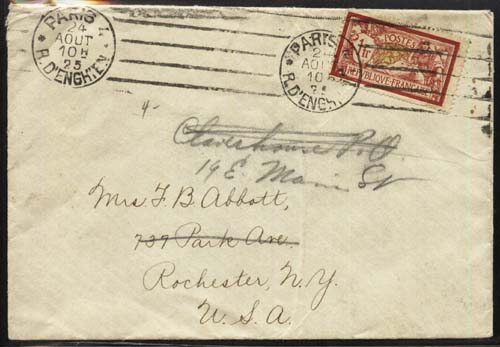 * PARIS 1 *
24
AOUT
10H
25
R. D'ENGHIEN
PARIS
2
AOU
10
25
R. D'ENGHIEN
POSTES
1fr
REPUBLIQUE FRANÇAISE
4-
P.O.
19 E. Main St
Mrs. F. B. Abbott,
739 Park Ave.
Rochester, N.Y.
U.S.A.